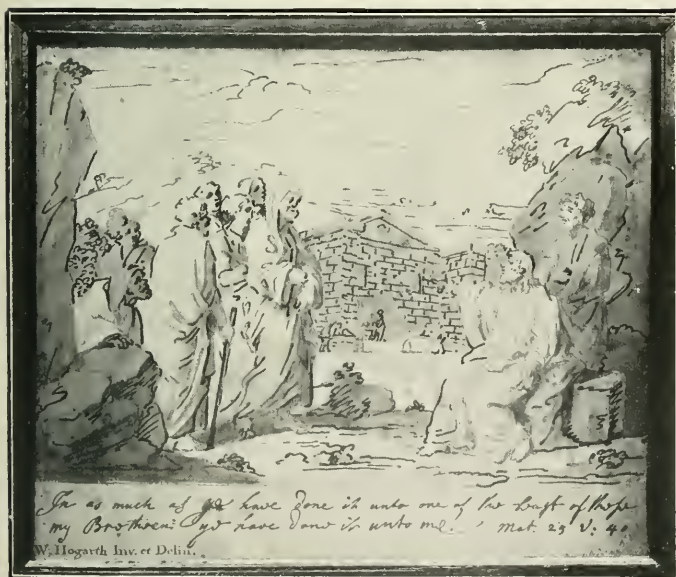 In as much as ye have done it unto one of the least of these
my Brethren ye have done it unto me. Mat. 25 V. 40
W. Hogarth Inv. et Delin.